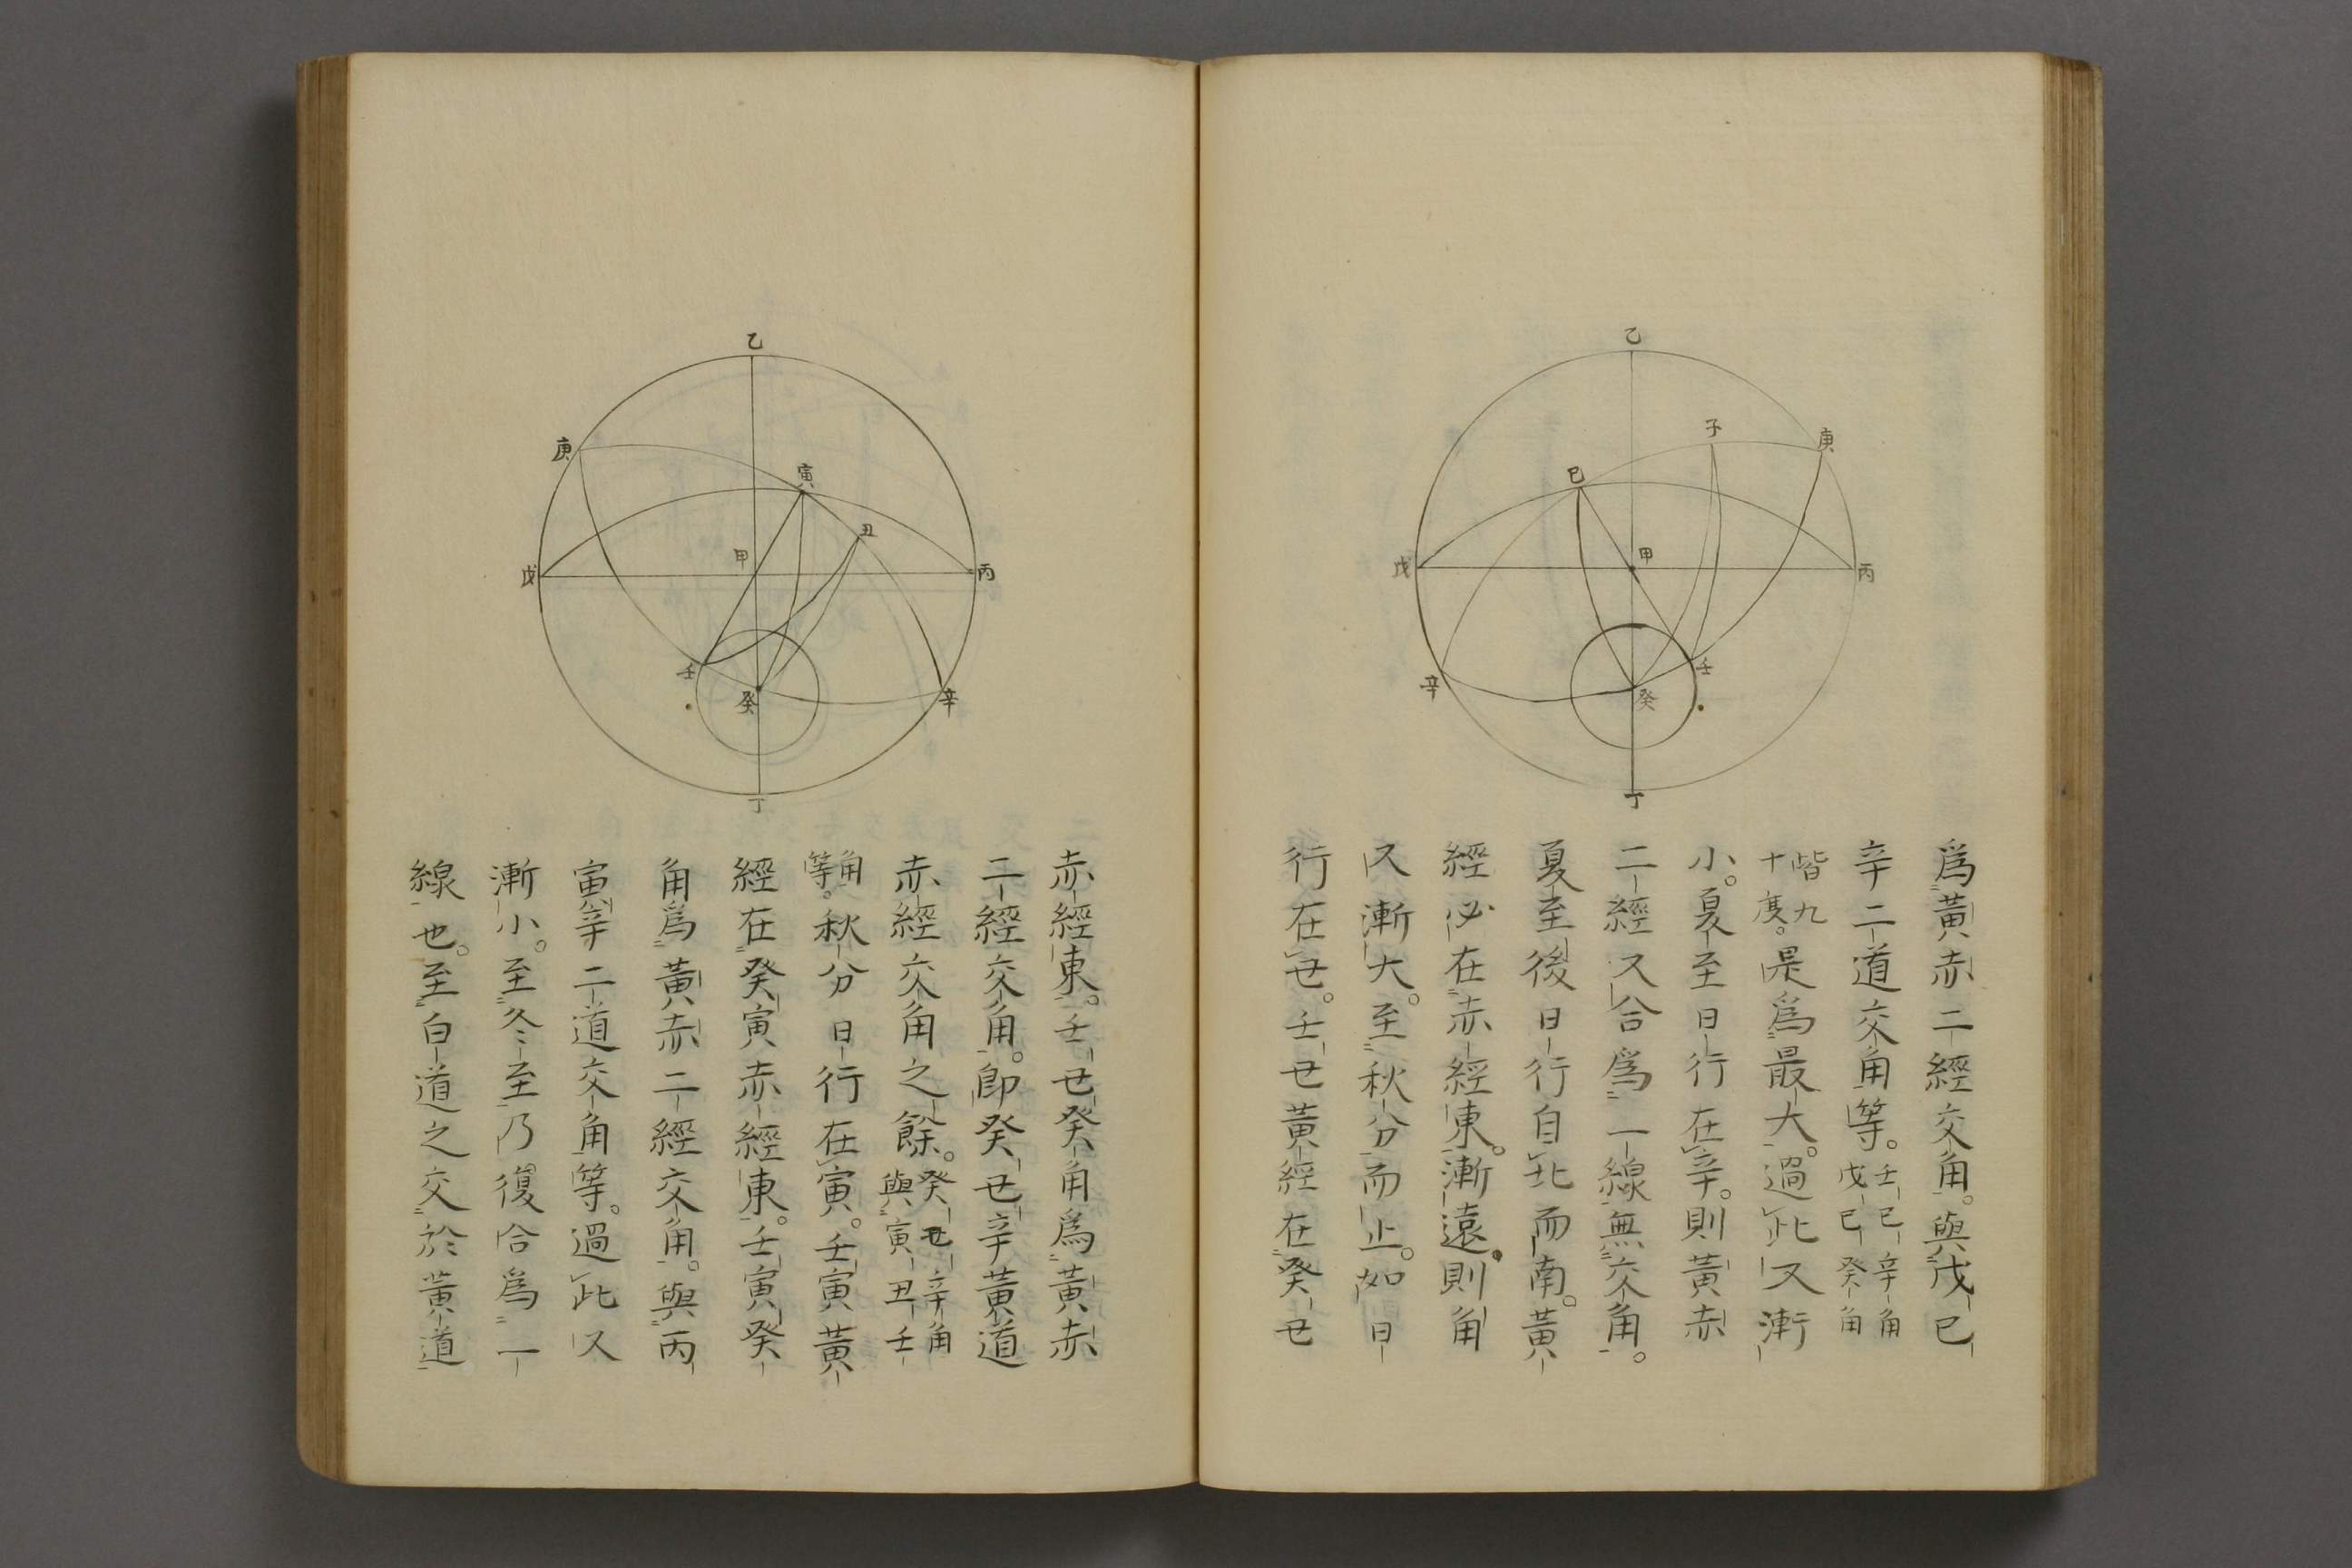 乙
子
庚
巳
甲
戊
丙
壬
辛
癸
丁
爲黃赤二經交角。與戊巳
辛二道交角等。壬巳辛角戊巳癸角
皆九十度。是爲最大。過此又漸
小。夏至日行在辛。則黃赤
二經又合爲一線無交角。
夏至後日行自北而南。黃
經必在赤經東。漸遠則角
又漸大。至秋分而止。如日
行在丑。壬丑黃經在癸丑
乙
庚
寅
丑
甲
戊
丙
壬
癸
辛
丁
赤經東。壬丑癸角爲黃赤
二經交角。卽癸丑辛黃道
赤經交角之餘。癸丑辛角與寅丑壬
角等。秋分日行在寅。壬寅黃
經在癸寅赤經東。壬寅癸
角爲黃赤二經交角。與丙
寅辛二道交角等。過此又
漸小。至冬至乃復合爲一
線也。至白道之交於黃道